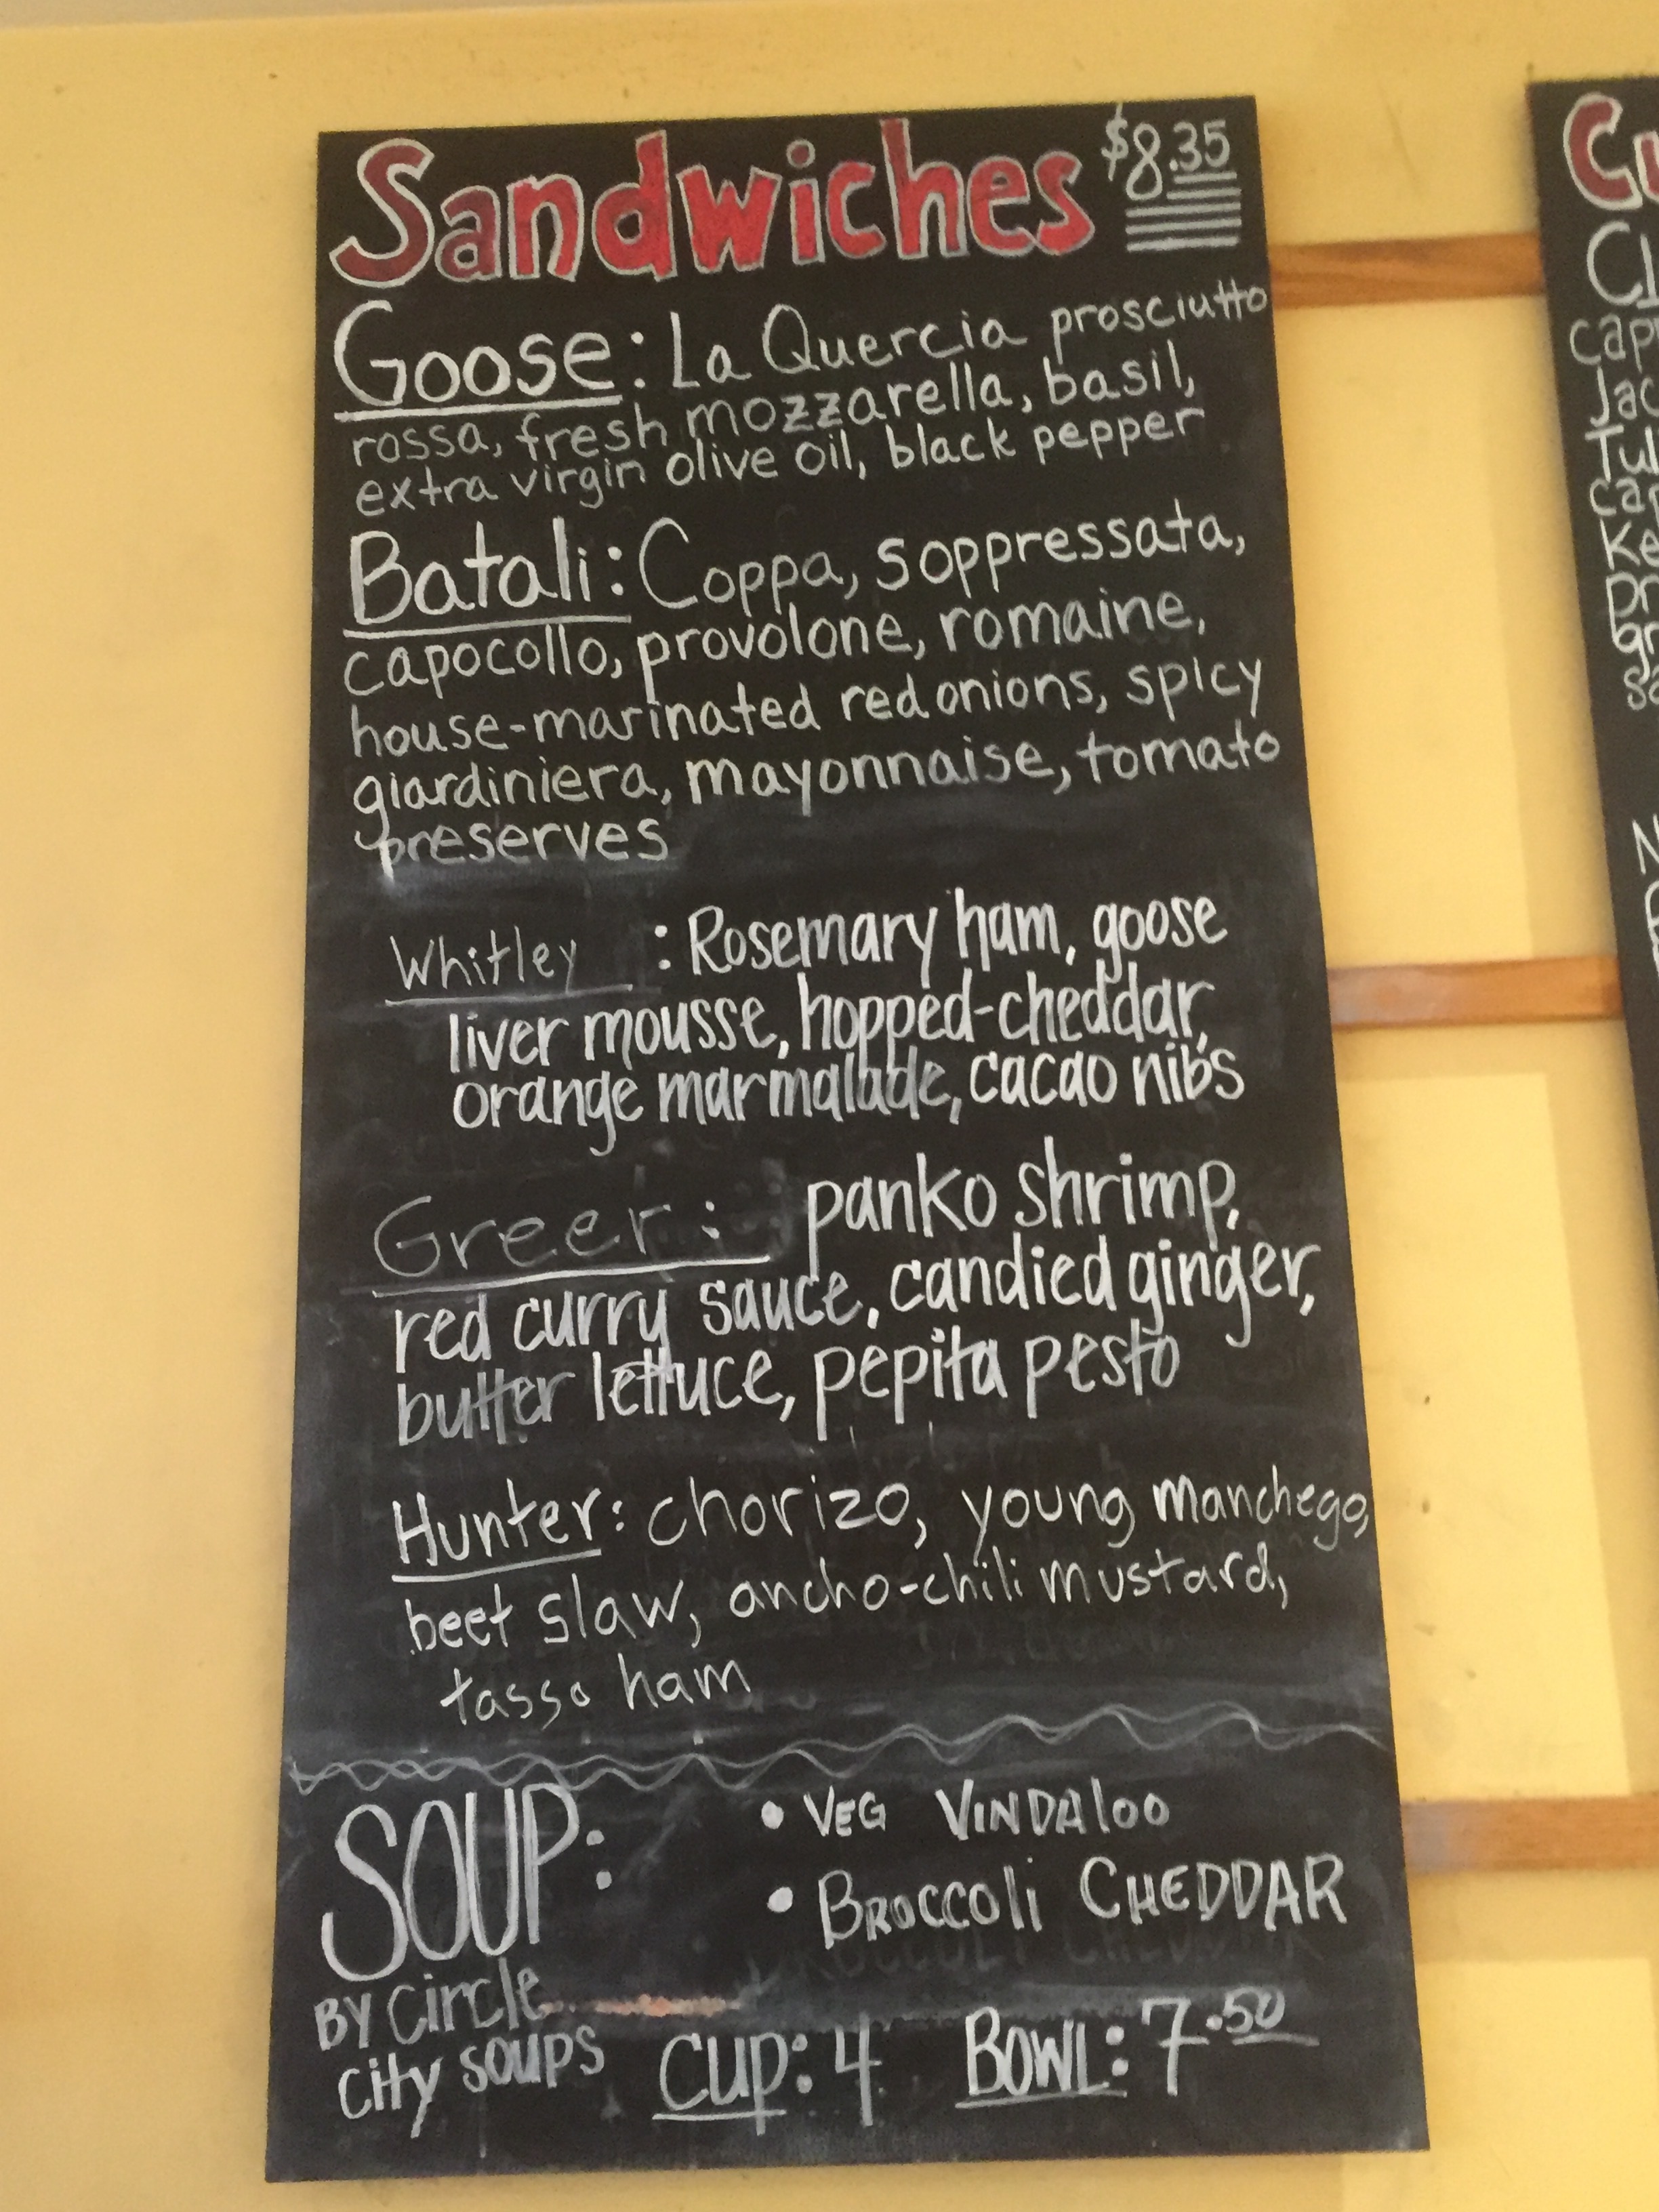 Sandwiches $8.35
Goose: La Quercia prosciutto
rossa, fresh mozzarella, basil,
extra virgin olive oil, black pepper
Batali: Coppa, soppressata,
capocollo, provolone, romaine,
house-marinated red onions, spicy
giardiniera, mayonnaise, tomato
preserves
Whitley : Rosemary ham, goose
liver mousse, hopped-cheddar,
orange marmalade, cacao nibs
Greer: panko shrimp,
red curry sauce, candied ginger,
butter lettuce, pepita pesto
Hunter: chorizo, young manchego,
beet slaw, ancho-chili mustard,
tasso ham
SOUP:
• VEG VINDAloo
• BROCCOli CHEDDAR
BY Circle
City Soups
Cup: 4 Bowl: 7.50